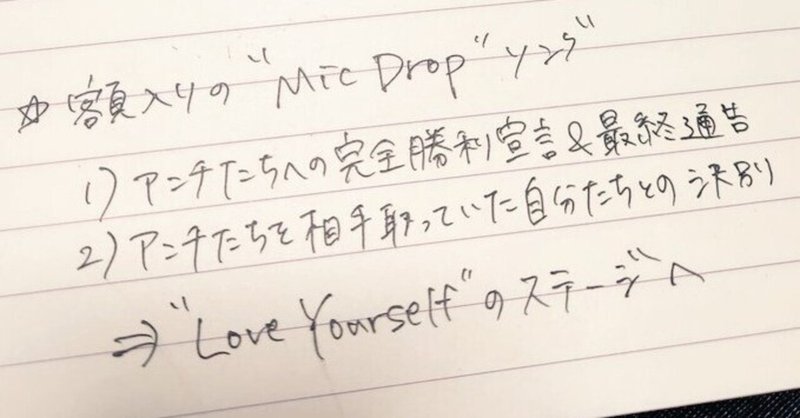 ☆ 額入りの"Mic Drop"ソング"
1) アンチたちへの完全勝利宣言&最終通告
2) アンチたちを相手取っていた自分たちとの決別
⇒"Love Yourself"のステージへ